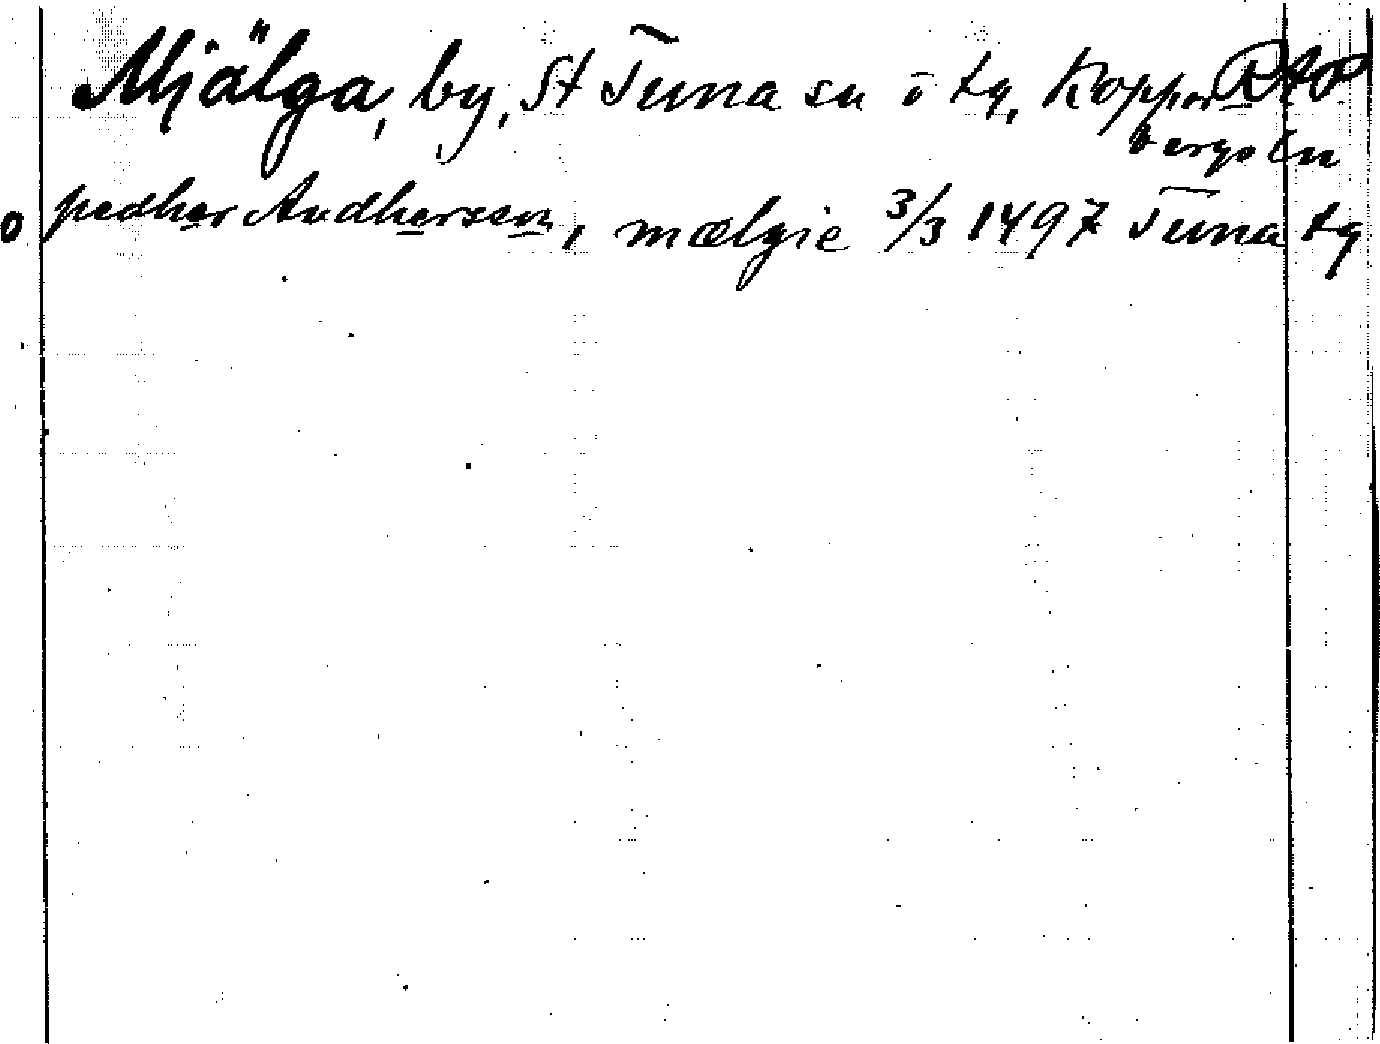 Mjälga, by, St Tuna sn o tg, Koppar
bergs län
o pedher Andhersson, mælgie 3/3 1497 Tuna tg